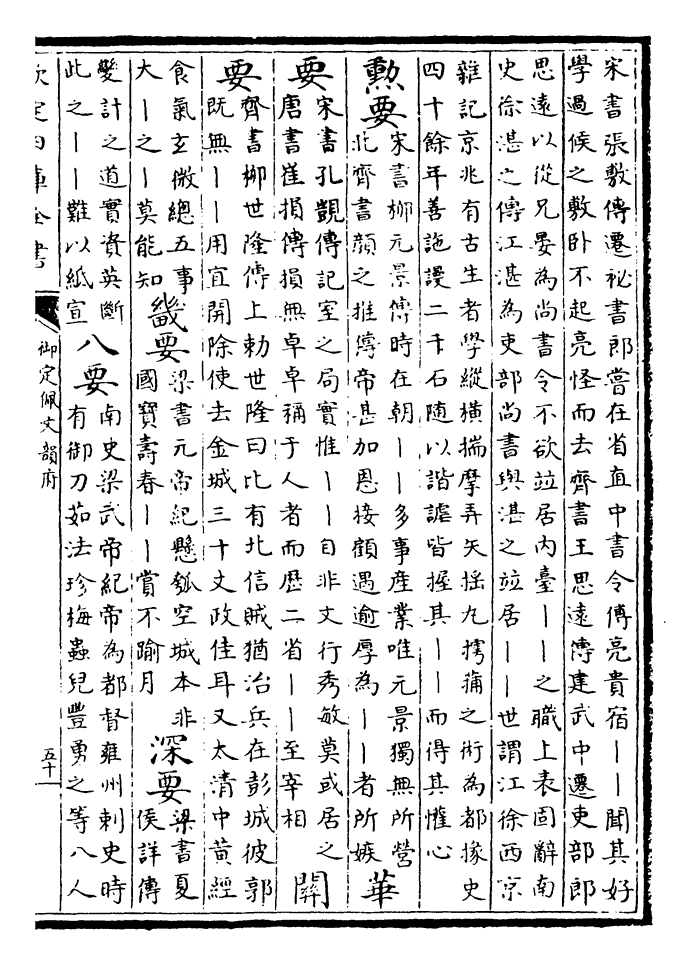 宋書張敷傳遷祕書郎嘗在省直中書令傅亮貴宿丨丨聞其好
學過候之敷卧不起亮怪而去齊書王思遠傳建武中遷吏部郎
思遠以從兄晏為尚書令不欲竝居内臺丨丨之職上表固辭南
史徐湛之傳江湛為吏部尚書與湛之竝居丨丨世謂江徐西京
雜記京兆有古生者學縱横揣摩弄矢揺丸摴蒱之術為都掾史
四十餘年善訑謾二千石随以諧謔皆握其丨丨而得其懽心
勲要
宋書柳元景傳時在朝丨丨多事産業唯元景獨無所營
北齊書顔之推傳帝甚加恩接顧遇逾厚為丨丨者所嫉
華
要
宋書孔覬傳記室之局實惟丨丨自非文行秀敏莫或居之
唐書崔損傳損無卓卓稱于人者而歴二省丨丨至宰相
關
要
齊書柳世隆傳上勅世隆曰比有北信賊猶治兵在彭城彼郭
既無丨丨用宜開除使去金城三十丈政佳耳又太清中黄經
食氣玄微總五事
大丨之丨莫能知
畿要
梁書元帝紀懸瓠空城本非
國寶壽春丨丨賞不踰月
深要
梁書夏
侯詳傳
變計之道實資英斷
此之丨丨難以紙宣
八要
南史梁武帝紀帝為都督雍州刺史時
有御刀茹法珍梅蟲兒豐勇之等八人
欽定四庫全書
御定佩文韻府
五十一